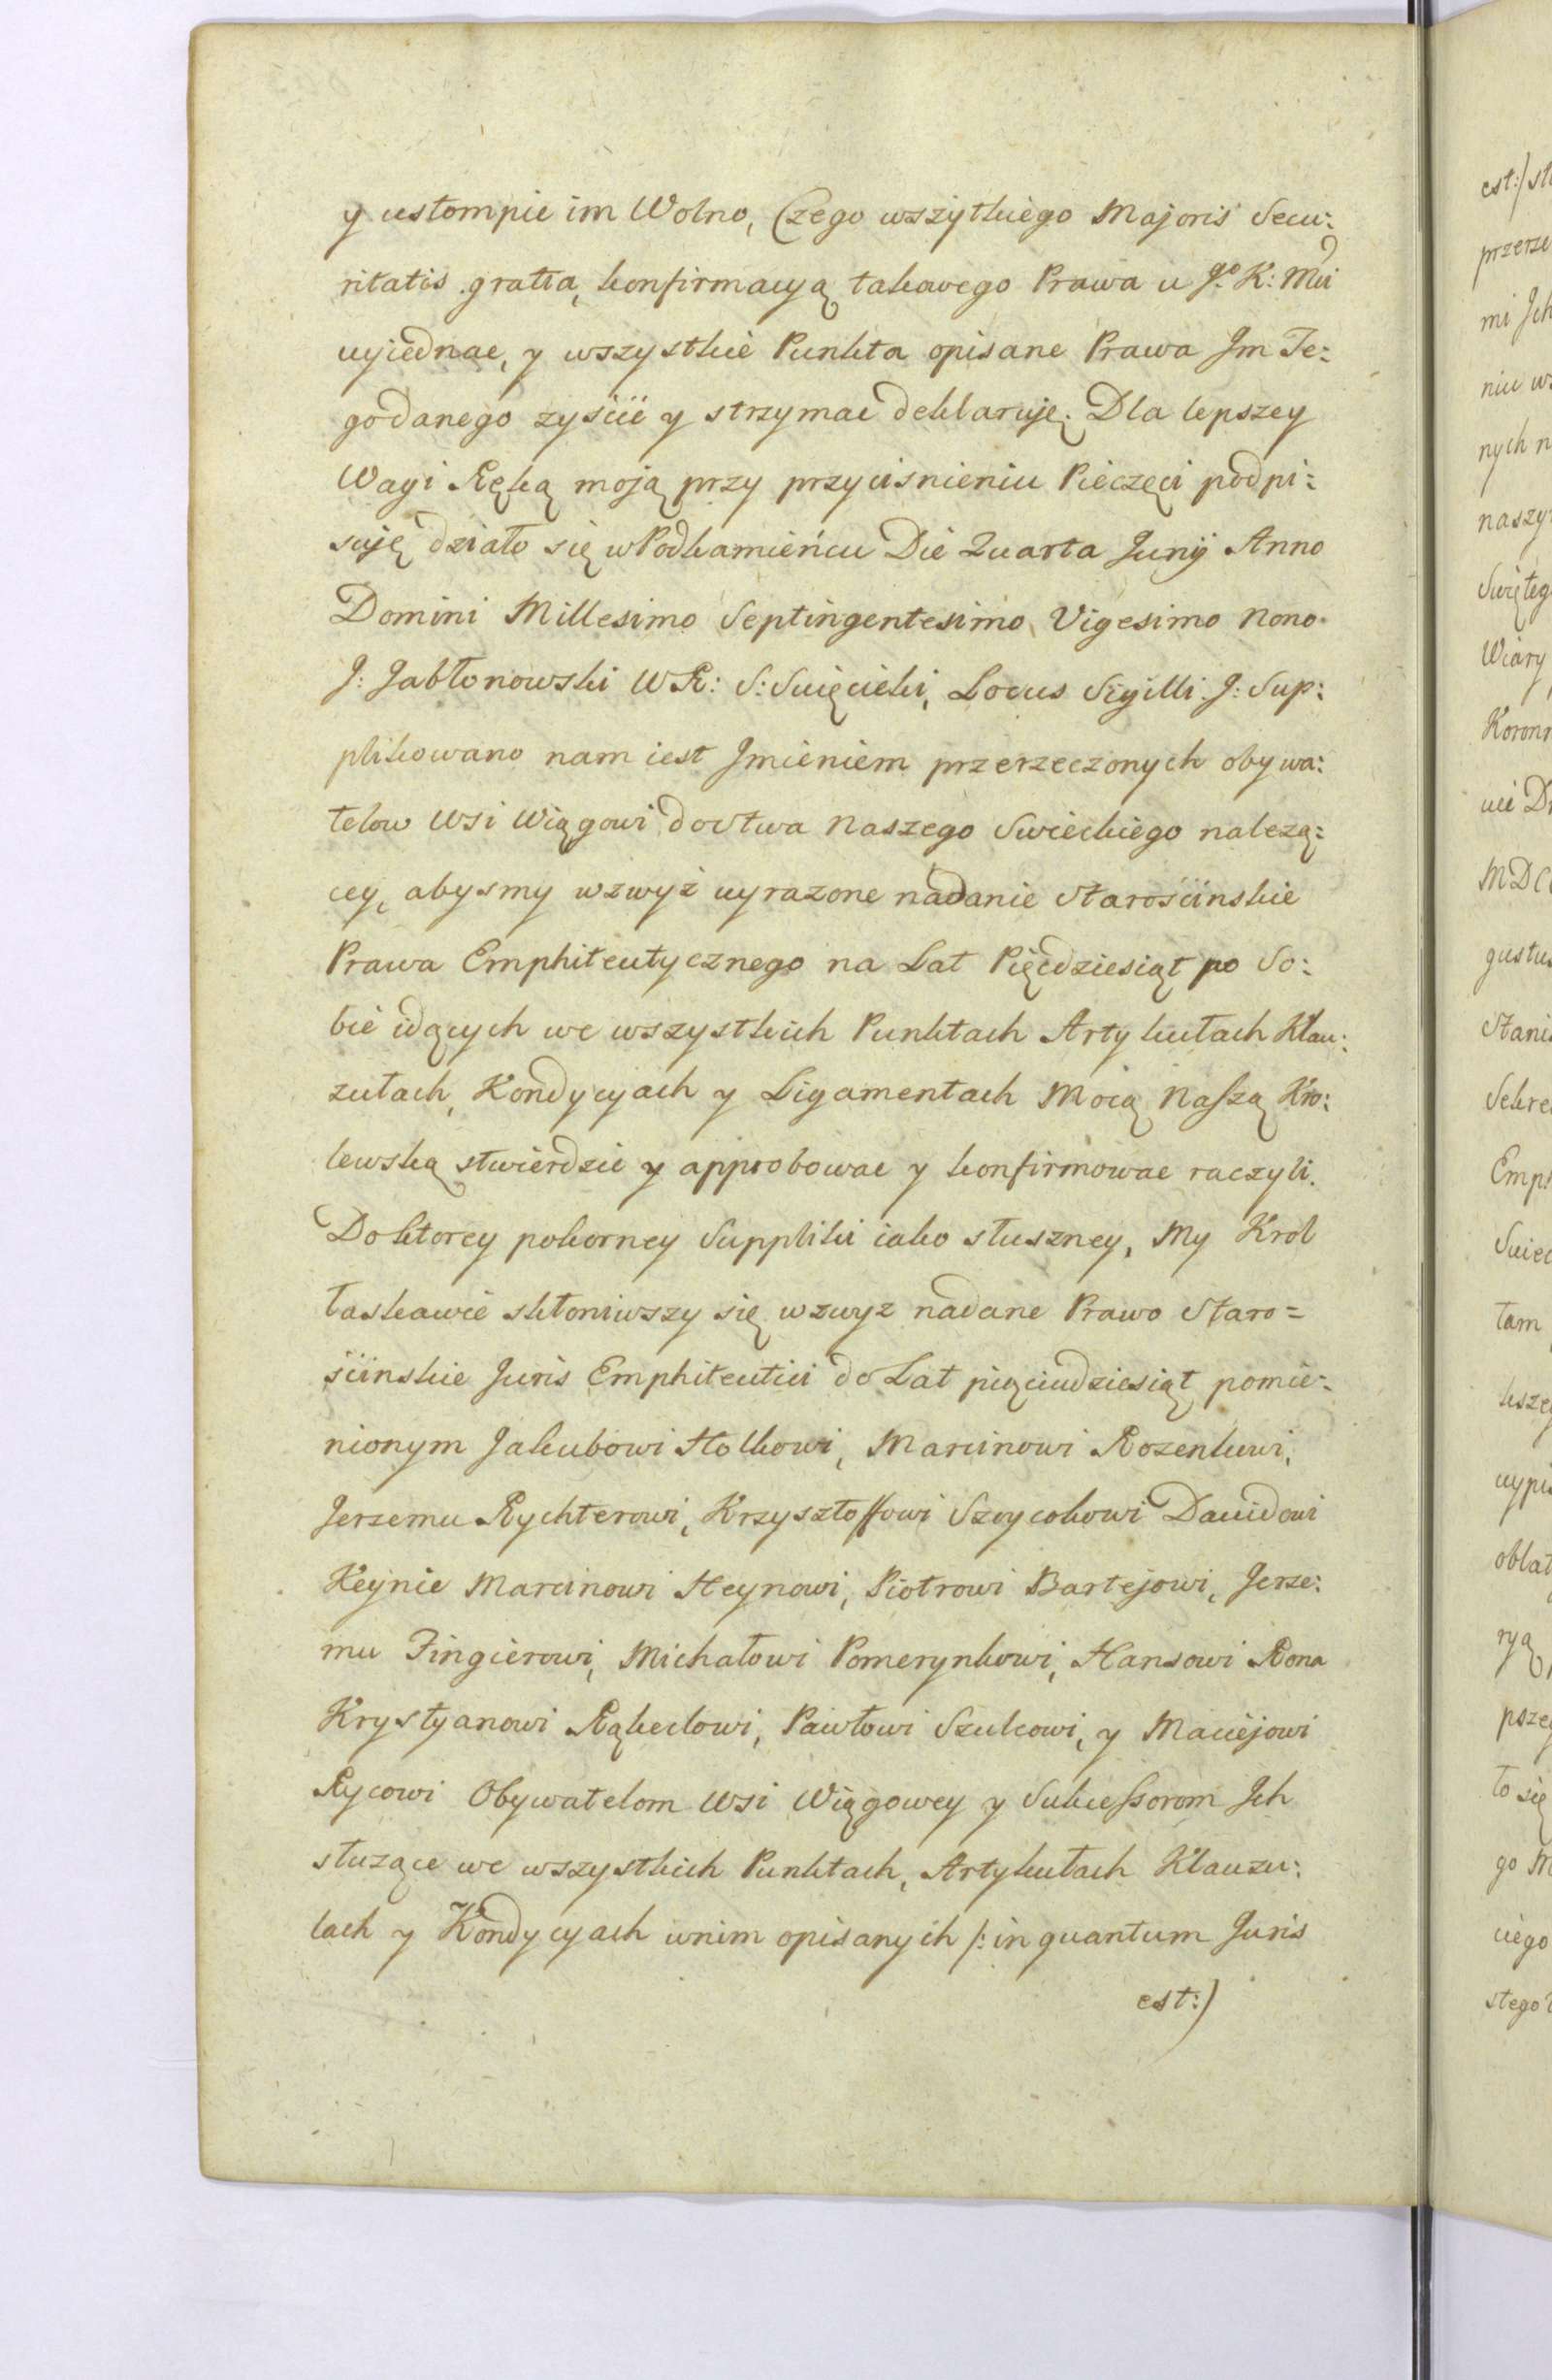 y ustompie im Wolno, Czego wszytkiego Majoris Secu:
ritatis gratia, konfirmacyą takowego Prawa u Jo K: Mci
uyiednac, y wszystkie Punkta opisane Prawa Im Te:
godanego zyscić y strzymac deklaruję. Dla lepszey
Wagi Ręką moją przy przycisnieniu Pieczęci podpi:
suję działo się w Podkamieńcu Die Quarta Junij Anno
Domini Millesimo Septingentesimo Vigesimo Nono.
J: Jabłonowski WR: S: Swięcicki, Locus Sigilli. J: Sup:
plikowano nam iest Imieniem przerzeczonych obywa:
telow wsi Wiągowi do Stwa Naszego Swieckiego nalezą:
cey, abysmy wzwyż uyrazone nadanie Starościnskie
Prawa Emphiteutycznego na Lat Pięcdziesiąt po So:
bie idących we wszystkich Punktach Artykułach Klau:
zułach, Kondycyach y Ligamentach Mocą Naszą Kro:
lewską stwierdzic y approbowac y konfirmowac raczyli.
Do ktorey pokorney Suppliki iako słuszney, My Krol
łaskawie skłoniwszy się wzwyz nadane Prawo Staro=
scinskie Juris Emphiteutici do Lat pięciudziesiąt pomie:
nionym Jakubowi Holkowi, Marcinowi Rozenkowi,
Jerzemu Rychterowi, Krzysztoffowi Szwycokowi Dawidowi
Keynie Marcinowi Heynowi, Piotrowi Bartejowi, Jerze:
mu Fingierowi, Michałowi Pomerynkowi, Hansowi Rona
Krystyanowi Rąkeclowi, Pawłowi Szulcowi, y Maciejowi
Rycowi Obywatelom wsi Wiągowey y Sukcessorom Ich
słuzące we wszystkich Punktach, Artykułach Klauzu:
lach y Kondycyach wnim opisanych /: in quantum Juris
est:)